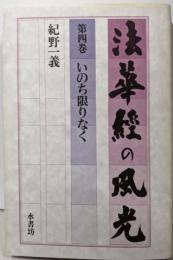 法華經の風光
第四巻 いのち限りなく
紀野一義
水書坊